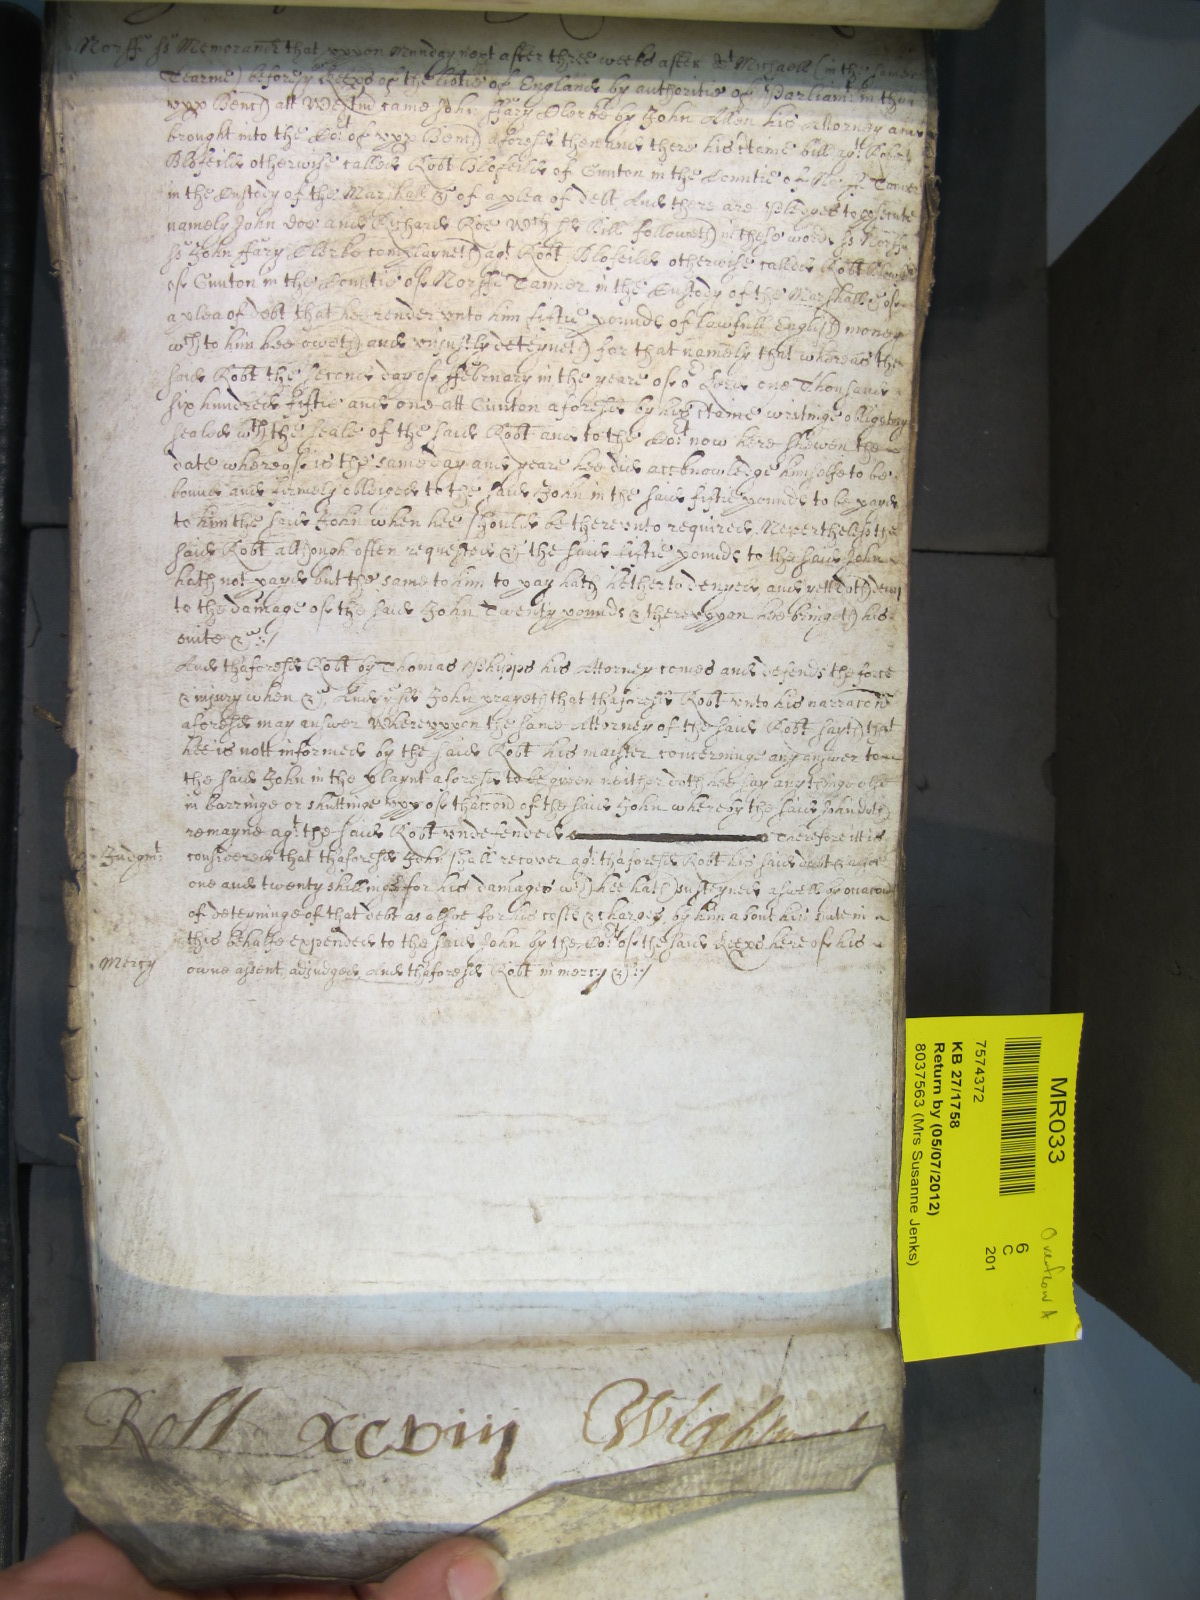 Norff ss Memorand that uppon Munday next after three weekes after St Michaell (in the same
Tearme) before ye Keeps of the libtie of England by authoritie of Parliamt in the
upp Bench att Westm came John ffary Clerke by John Allen his Attorney and
brought into the Cort of upp Bench aforesd then and there his ctaine bill agt Robt
Blofeild otherwise called Robt Blofeild of Gunton in the Countie of Norff Tanner
in the Custody of the Marshall &c of a plea of debt And there are Pledges to psecute
namely John Doe and Richard Roe Wch sd Bill followeth in these words ss Norff
ss John ffary Clerke complayneth agt Robt Blofeild otherwise called Robt Blofeild
of Gunton in the Countie of Norff Tanner in the Custody of the Marshall &c of
a plea of debt that hee render unto him fiftie pounds of lawfull English money
wch to him hee oweth and unjustly deteyneth for that namely that whereas the
said Robt the second day of ffebruary in the yeare of or Lord one Thousand
six hundred fiftie and one att Gunton aforesd by his ctaine writinge obligatory
sealed wth the seale of the said Robt and to the Cort now here shewen the
date whereof is the same day and yeare hee did acknowledge himselfe to be
bound and firmely obliged to the said John in the said fiftie pounds to be payd
to him the said John when hee should be thereunto required Neverthelesse the
said Robt although often requested &c the said fiftie pounds to the said John
hath not payd but the same to him to pay hath hitherto denyed and yett doth deny
to the damage of the said John Twenty pounds & thereuppon hee bringeth his
suite &c
And thaforesd Robt by Thomas Phipps his Attorney comes and defends the force
& injury when &c And ye sd John prayeth that thaforesd Robt unto his narracon
aforesd may answer Whereuppon the same Attorney of the said Robt sayth that
hee is nott informed by the said Robt his master concerninge any answer to
the said John in the playnt aforesd to be given neither doth hee say any thinge else
in barringe or shuttinge upp of thaccon of the said John whereby the said John doth
remayne agt the said Robt undefended Therefore itt is
Judgmt
considered that thaforesd John shall recover agt thaforesd Robt his said debt & alsoe
one and twenty shillings for his damages wch hee hath susteyned aswell by occacon
of deteyninge of that debt as alsoe for his costs & charges by him about his suite in
this behalfe expended to the said John by the Cort of the said Keeps here of his
Mercy
owne assent adjudged And thaforesd Robt in mercy &c
Roll xcviij Wightwick
MR033
7574372
KB 27/1758
Return by (05/07/2012)
8037563 (Mrs Susanne Jenks)
6
C
201
Overflow A